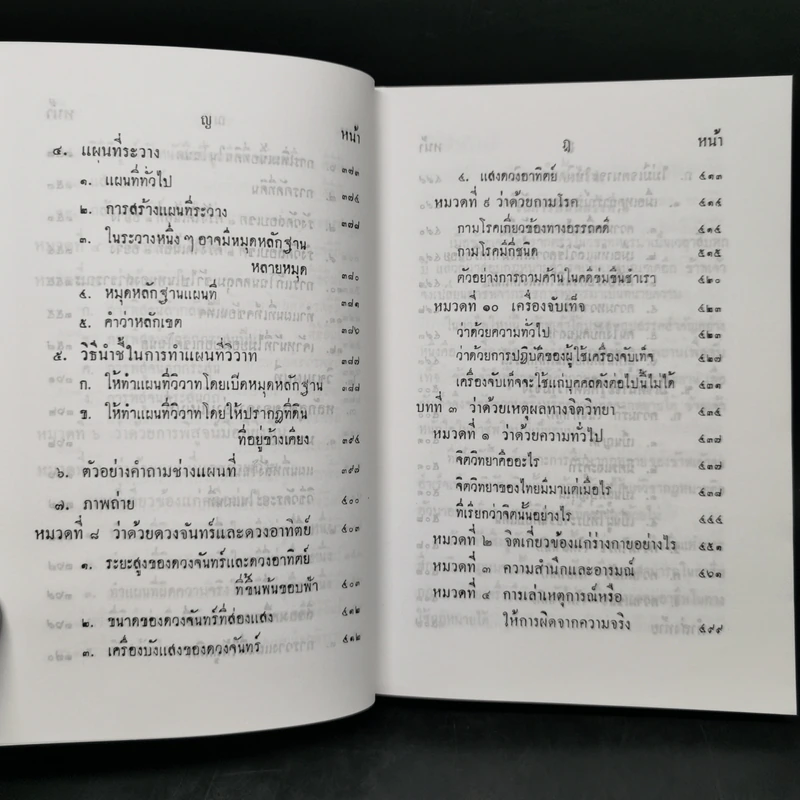 ญ
หน้า
๔. แผนที่ระวาง ๓๗๓
๑. แผนที่ทั่วไป ๓๗๔
๒. การสร้างแผนที่ระวาง ๓๗๘
๓. ในระวางหนึ่ง ๆ อาจมีหมุดหลักฐาน
หลายหมุด ๓๘๐
๔. หมุดหลักฐานแผนที่ ๓๘๑
๕. คำว่าหลักเขต ๓๘๖
๕. วิธีนำชี้ในการทำแผนที่วิวาท ๓๘๗
ก. ให้ทำแผนที่วิวาทโดยเบิดหมุดหลักฐาน ๓๘๘
ข. ให้ทำแผนที่วิวาทโดยให้ปรากฎที่ดิน
ที่อยู่ข้างเคียง ๓๙๔
๖. ตัวอย่างคำถามช่างแผนที่ ๓๙๘
๗. ภาพถ่าย ๔๐๐
หมวดที่ ๘ ว่าด้วยดวงจันทร์และดวงอาทิตย์ ๔๐๓
๑. ระยะสูงของดวงจันทร์และดวงอาทิตย์
ที่ขึ้นพ้นขอบฟ้า ๔๐๓
๒. ขนาดของดวงจันทร์ที่ส่องแสง ๔๑๒
๓. เครื่องบังแสงของดวงจันทร์ ๔๑๒
ฎ
หน้า
๔. แสงดวงอาทิตย์ ๔๑๓
หมวดที่ ๙ ว่าด้วยกามโรค ๔๑๔
กามโรคเกี่ยวข้องทางอรรถคดี ๔๑๔
กามโรคมีกี่ชนิด ๔๑๕
ตัวอย่างการถามค้านในคดีข่มขืนชำเรา ๔๒๐
หมวดที่ ๑๐ เครื่องจับเท็จ ๔๒๓
ว่าด้วยความทั่วไป
ว่าด้วยการปฏิบัติของผู้ใช้เครื่องจับเท็จ ๔๒๗
เครื่องจับเท็จจะใช้แก่บุคคลดังต่อไปนี้ไม่ได้ ๔๓๑
บทที่ ๓ ว่าด้วยเหตุผลทางจิตวิทยา ๔๓๕
หมวดที่ ๑ ว่าด้วยความทั่วไป ๔๓๗
จิตวิทยาคืออะไร ๔๓๗
จิตวิทยาของไทยมีมาแต่เมื่อไร ๔๓๘
ที่เรียกว่าจิตนั้นอย่างไร ๔๔๔
หมวดที่ ๒ จิตเกี่ยวข้องแก่ร่างกายอย่างไร ๔๕๑
หมวดที่ ๓ ความสำนึกและอารมณ์ ๔๖๑
หมวดที่ ๔ การเล่าเหตุการณ์หรือ
ให้การผิดจากความจริง ๔๙๙